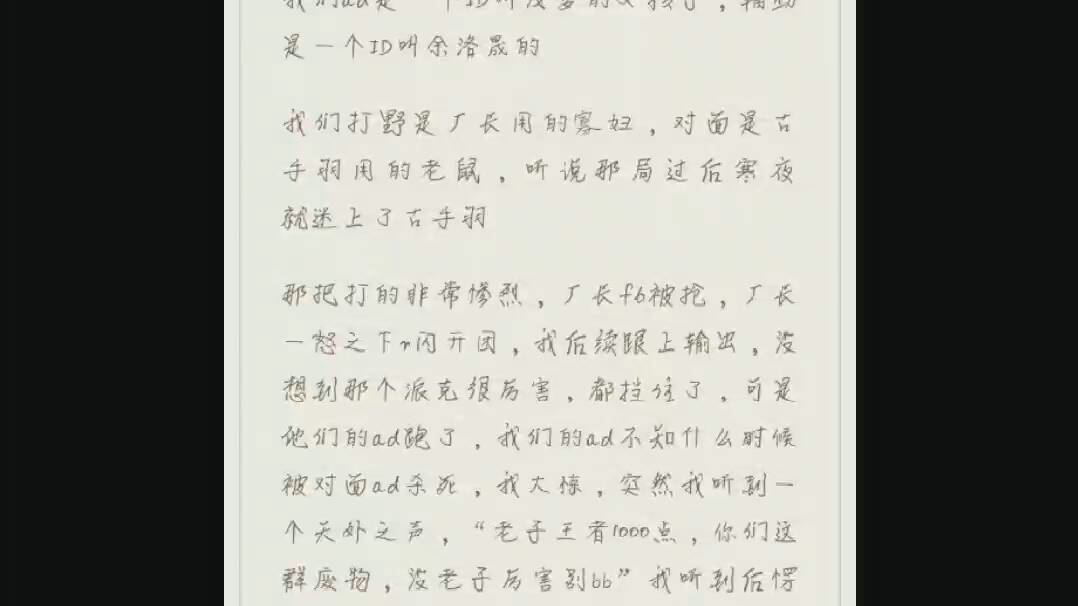 是一个ID叫余洛晟的
我们打野是厂长用的寡妇，对面是古
手羽用的老鼠，听说那局过后寒夜
就迷上了古手羽
那把打的非常惨烈，厂长fb被抢，厂长
一怒之下r闪开团，我后续跟上输出，没
想到那个派克很厉害，都挡住了，可是
他们的ad跑了，我们的ad不知什么时候
被对面ad杀死，我大惊，突然我听到一
个天外之声，“老子王者1000点，你们这
群废物，没老子厉害别bb”我听到后愣